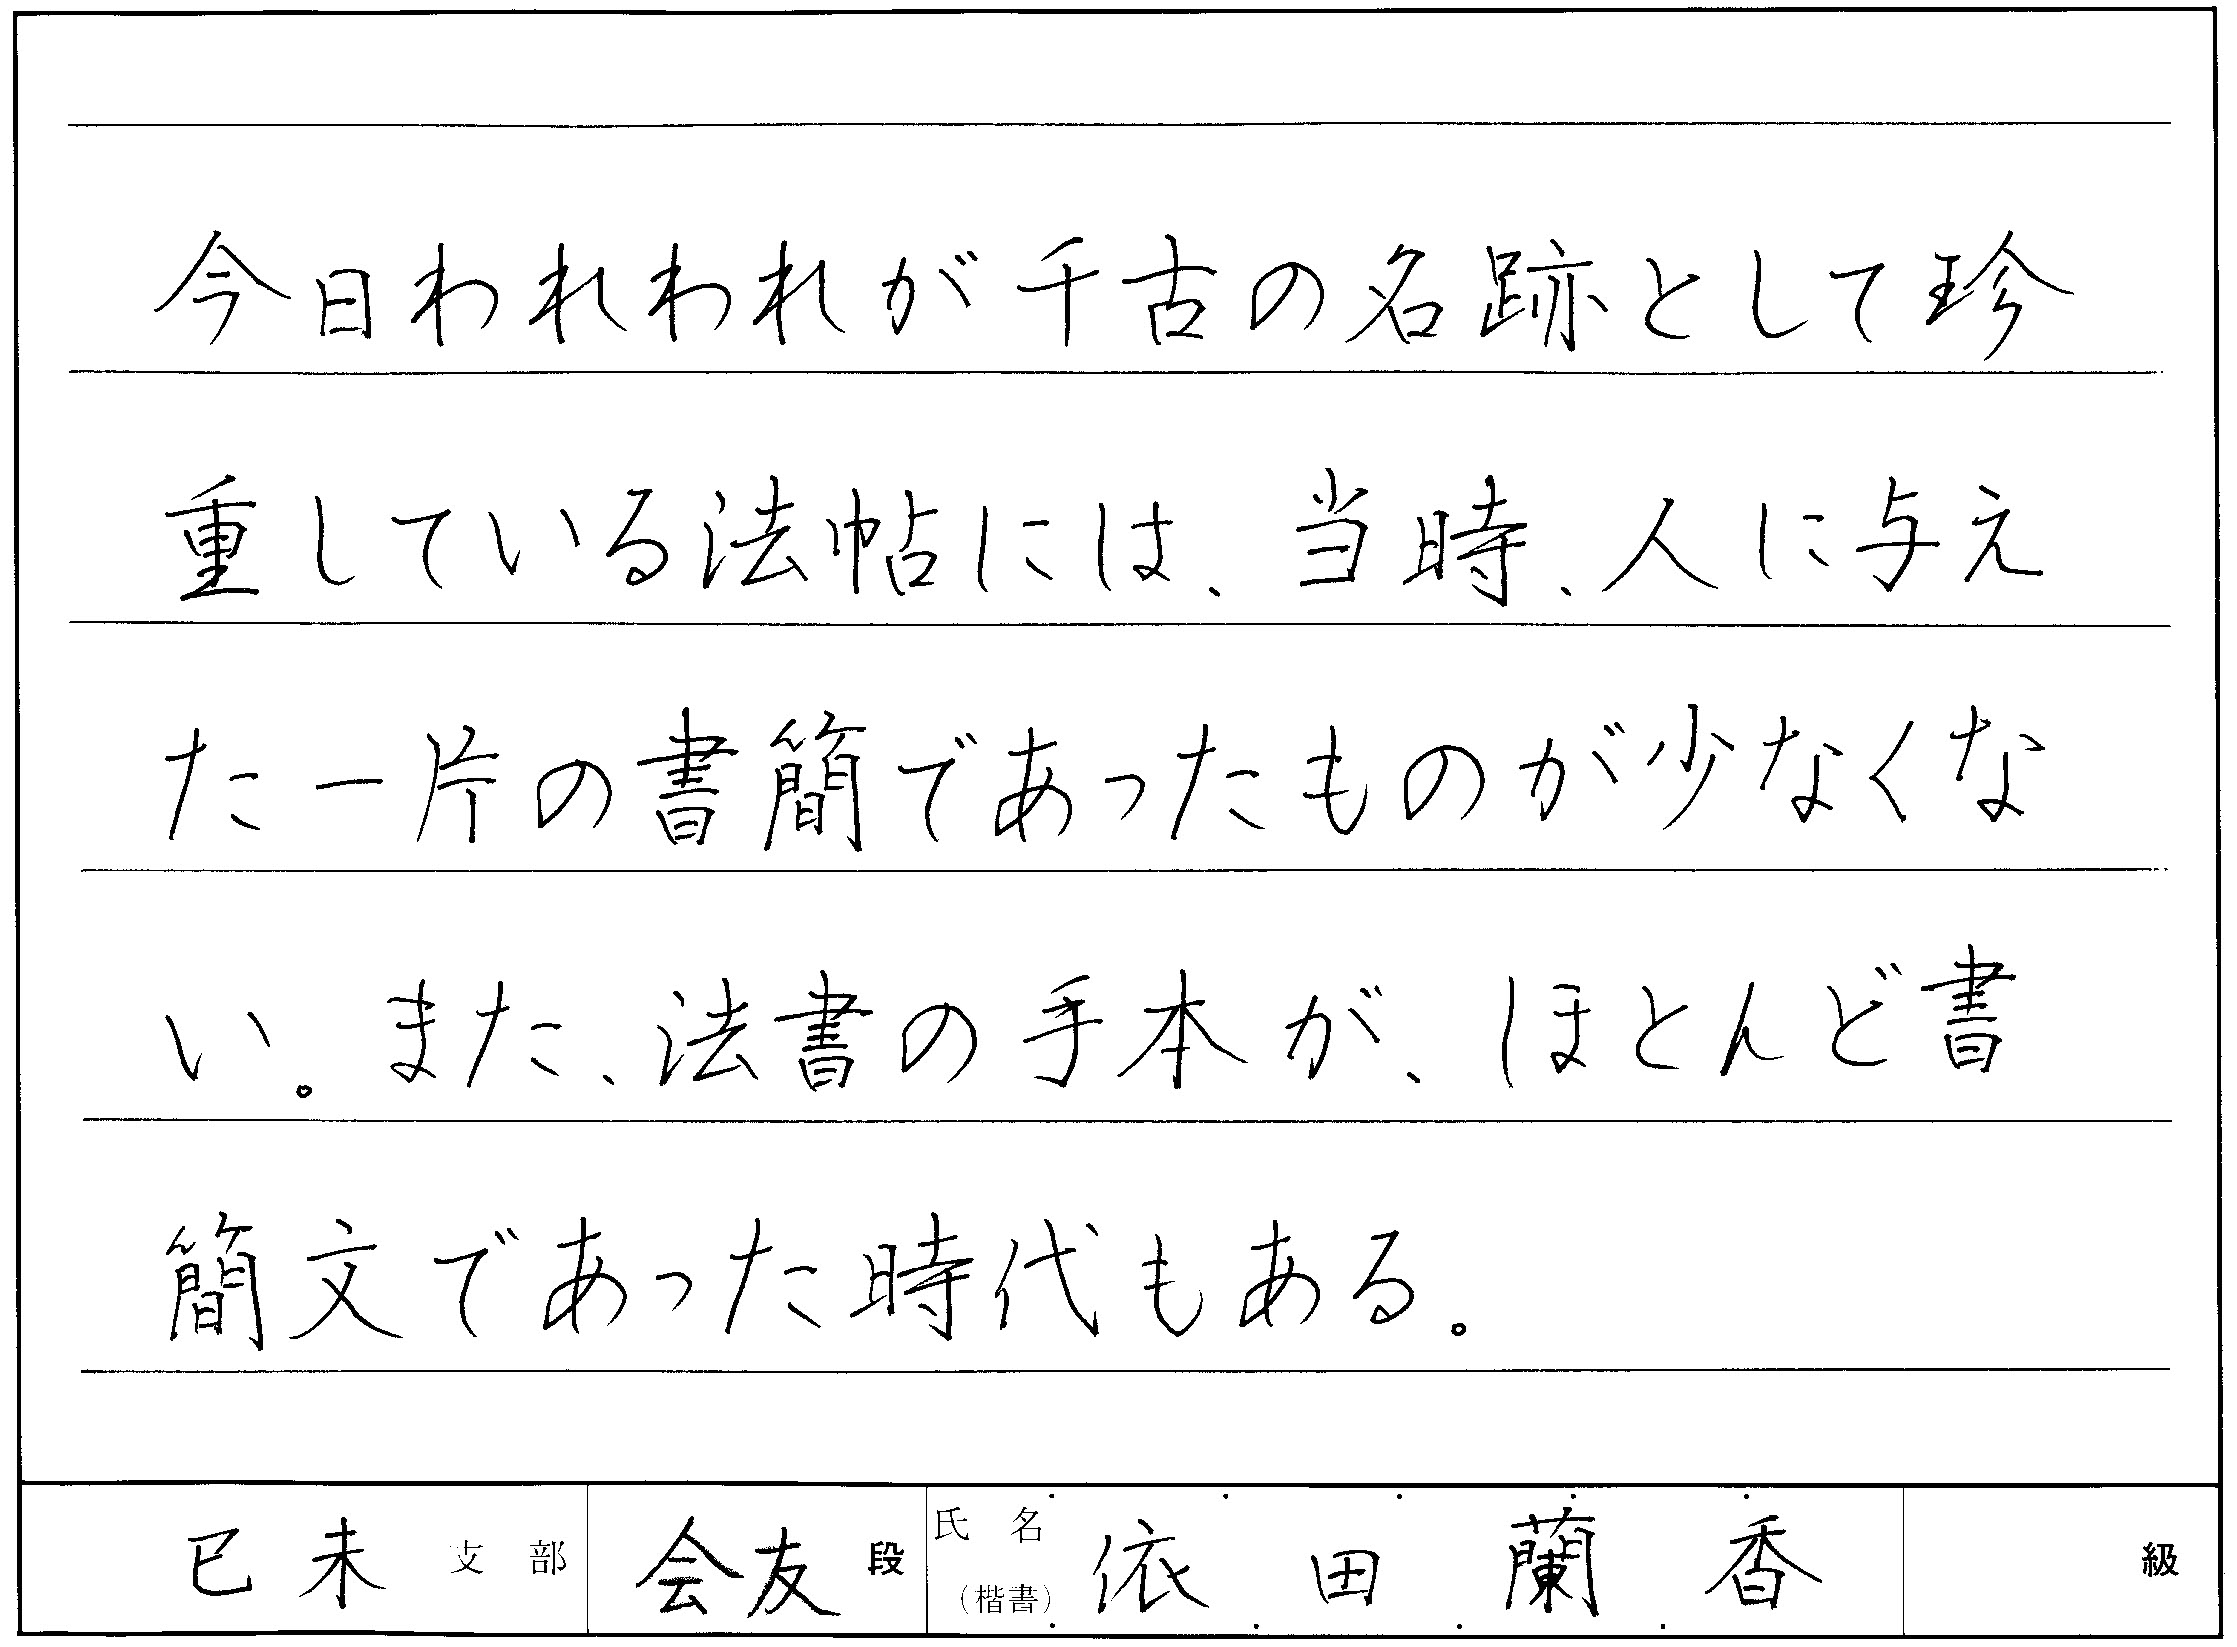 今日われわれが千古の名跡として珍
重している法帖には、当時、人に与え
た一片の書簡であったものが少なくな
い。また、法書の手本が、ほとんど書
簡文であった時代もある。
己未 支部 会友 段 氏名 (楷書) 依田蘭香 級